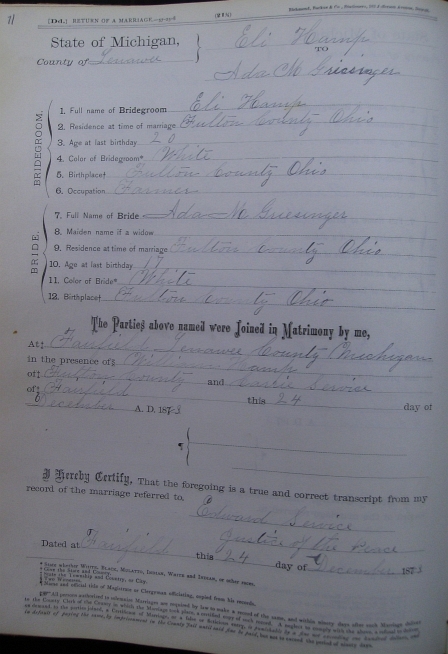 71
[Dd.] RETURN OF A MARRIAGE.
(218)
State of Michigan,
County of Lenawee
Eli Hamp
TO
Ada M Griesinger
BRIDEGROOM.
1. Full name of Bridegroom Eli Hamp
2. Residence at time of marriage Fulton County Ohio
3. Age at last birthday 20
4. Color of Bridegroom* White
5. Birthplace† Fulton County Ohio
6. Occupation Farmer
BRIDE.
7. Full Name of Bride Ada M Griesinger
8. Maiden name if a widow
9. Residence at time of marriage Fulton County Ohio
10. Age at last birthday 17
11. Color of Bride* White
12. Birthplace† Fulton County Ohio
The Parties above named were Joined in Matrimony by me,
At‡ Fairfield Lenawee County Michigan
in the presence of§ William Hamp
of‡ Fulton County and Carrie Service
of‡ Fairfield this 24 day of
December A. D. 187
¶
I Hereby Certify, That the foregoing is a true and correct transcript from my
record of the marriage referred to.
Edward Service
Justice of the Peace
Dated at Fairfield this 24 day of December 187
* State whether WHITE, BLACK, MULATTO, INDIAN, WHITE and INDIAN, or other races.
† Give the State and County.
‡ State the Township and County, or City.
§ Two Witnesses.
¶ Name and official title of Magistrate or Clergyman officiating, copied from his records.